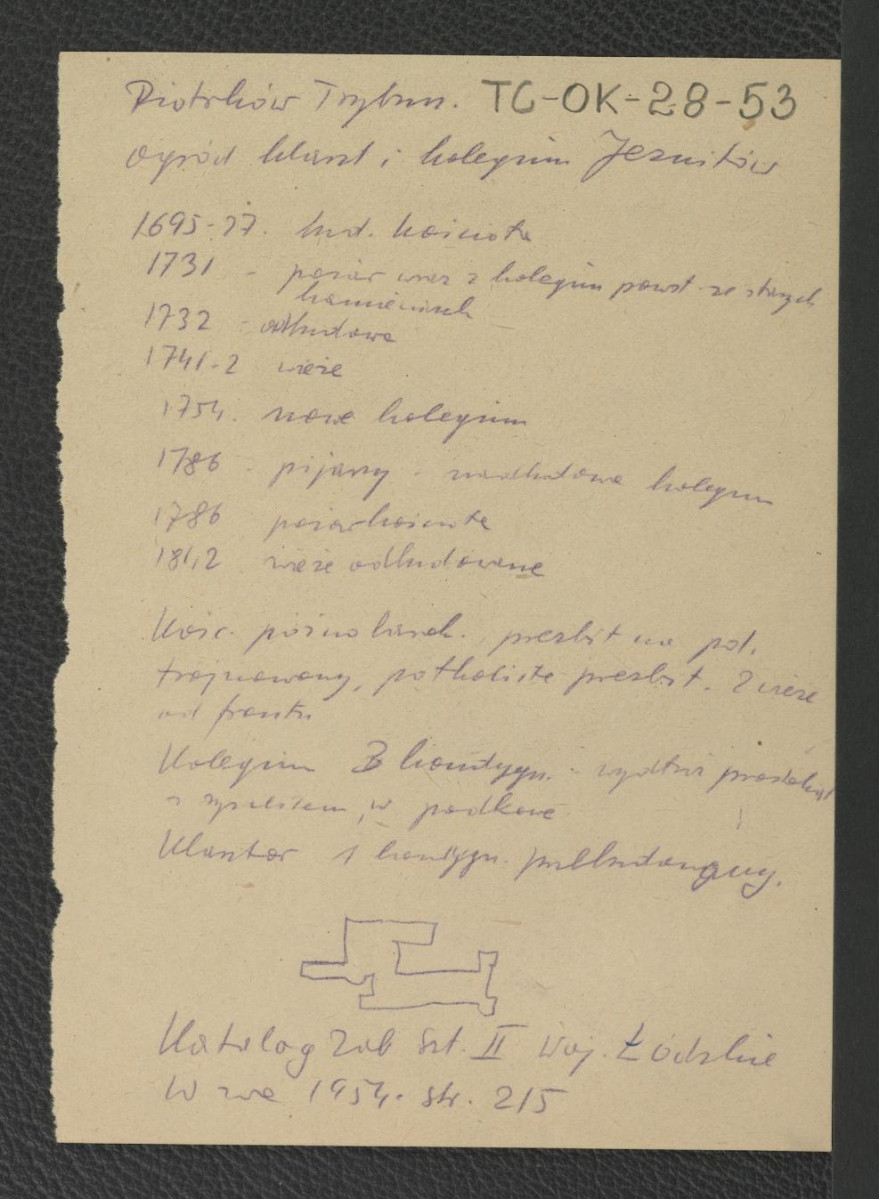 Piotrków Trybun. TC-OK-28-53
Ogród klaszt i kolegium Jezuitów
1695-27. bud. kościoła
1731 - pożar wraz z kolegium powst. ze starych
kamienicach
1732 - odbudowa
1741-2 wieże
1754. nowe kolegium
1786 - pijarzy - nadbudowa kolegium
1786 pożar kościoła
181,2 wieże odbudowane
Kośc. późnobarok. prezbit na poł.
trójnawowy, półkoliste prezbit. 2 wieże
od frontu
Kolegium 3 kondygn. - wydłuż prostokąt
z w podkowę
Klasztor 1 kondygn. przebudowany.
Katalog Zab Szt. II Woj. Łódzkie
W-wa 1954. str. 215